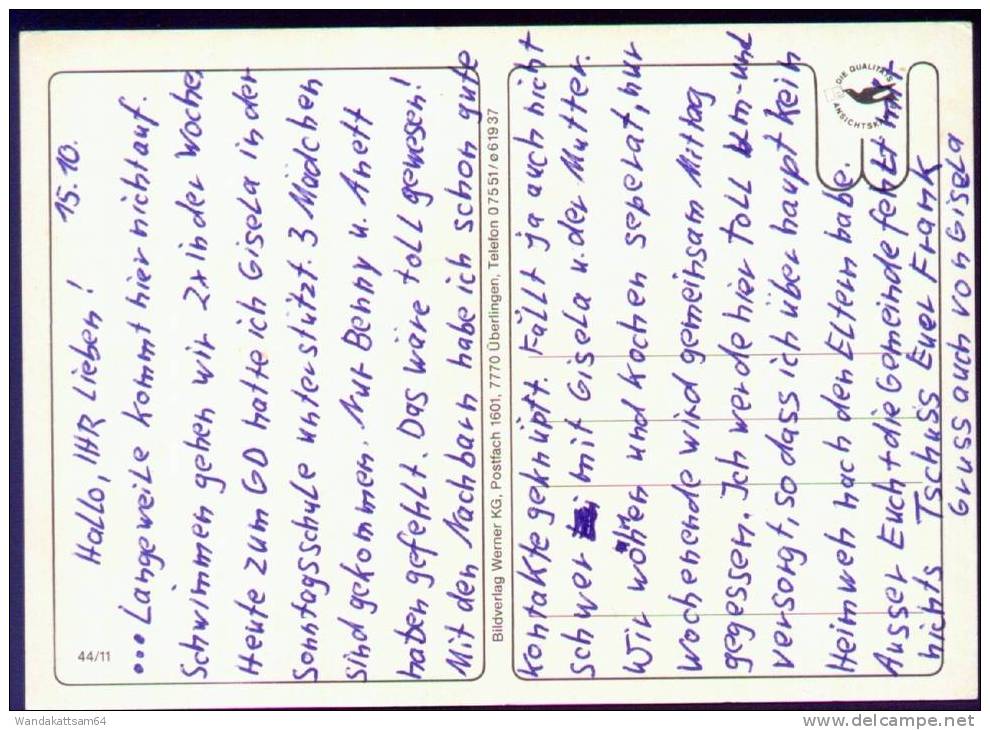 15.10.
Hallo, IHR Lieben!
...Langeweile kommt hier nicht auf.
Schwimmen gehen wir 2x in der Woche,
Heute zum GD hatte ich Gisela in der
Sonntagsschule unterstützt. 3 Mädchen
sind gekommen. Nur Benny u. Anett
haben gefehlt. Das wäre toll gewesen!
Mit den Nachbarn habe ich schon gute
Kontakte geknüpft. Fällt ja auch nicht
schwer mit Gisela u. der Mutter.
Wir wohnen und kochen seperat, nur
Wochenende wird gemeinsam Mittag
gegessen. Ich werde hier toll um- und
versorgt, so dass ich überhaupt kein
Heimweh nach den Eltern habe.
Ausser Euch + die Gemeinde fehlt mir
nichts Tschüss Euer Frank
Gruss auch von Gisela
44/11
Bildverlag Werner KG, Postfach 1601, 7770 Überlingen, Telefon 07551/ø61937
DIE QUALITÄTS
ANSICHTSKA
Wandakattsam64
delcampe.net